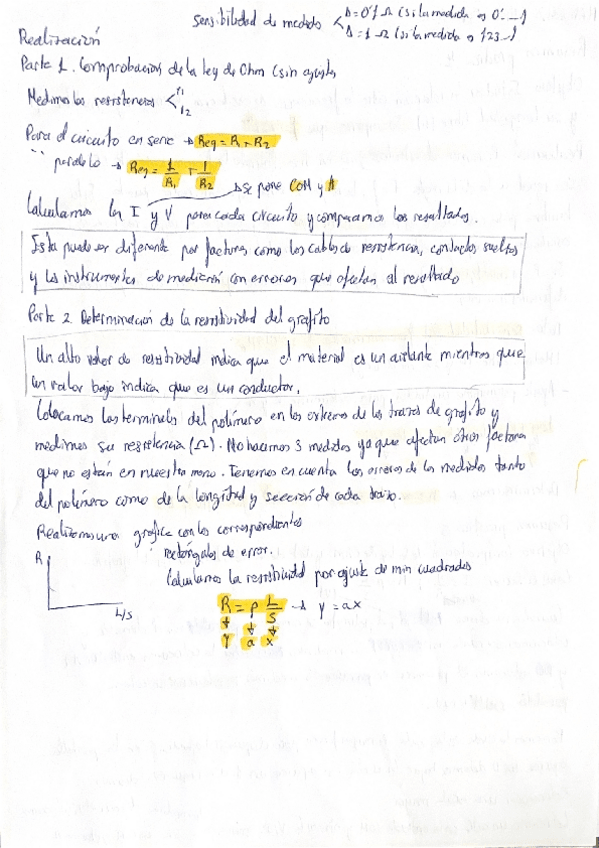 sensibilidad de medidas < Δ = 0'1 Ω (si la medida es 0'...)
Δ = 1 Ω (si la medida es 123...)
Realización
Parte 1. Comprobación de la ley de Ohm (sin ajuste)
Medimos las resistencias < r1
r2
Para el circuito en serie → Req = R1 + R2
" paralelo → Req = 1/R1 + 1/R2
→ se pone COM y A
Calculamos la I y V para cada circuito y comparamos los resultados.
Esta puede ser diferente por factores como los cables de resistencia, contactos sueltos
y los instrumentos de medición con errores que afectan al resultado
Parte 2. Determinación de la resistividad del grafito
Un alto valor de resistividad indica que el material es un aislante mientras que
un valor bajo indica que es un conductor.
Colocamos los terminales del polímero en los extremos de los trazos de grafito y
medimos su resistencia (Ω). No hacemos 3 medidas ya que afectan otros factores
que no están en nuestra mano. Tenemos en cuenta los errores de las medidas tanto
del polímero como de la longitud y sección de cada trazo.
Realizamos una gráfica con los correspondientes
rectángulos de error.
R
Calculamos la resistividad por ajuste de min cuadrados
L/S
R = ρ L/S → y = ax
y a x